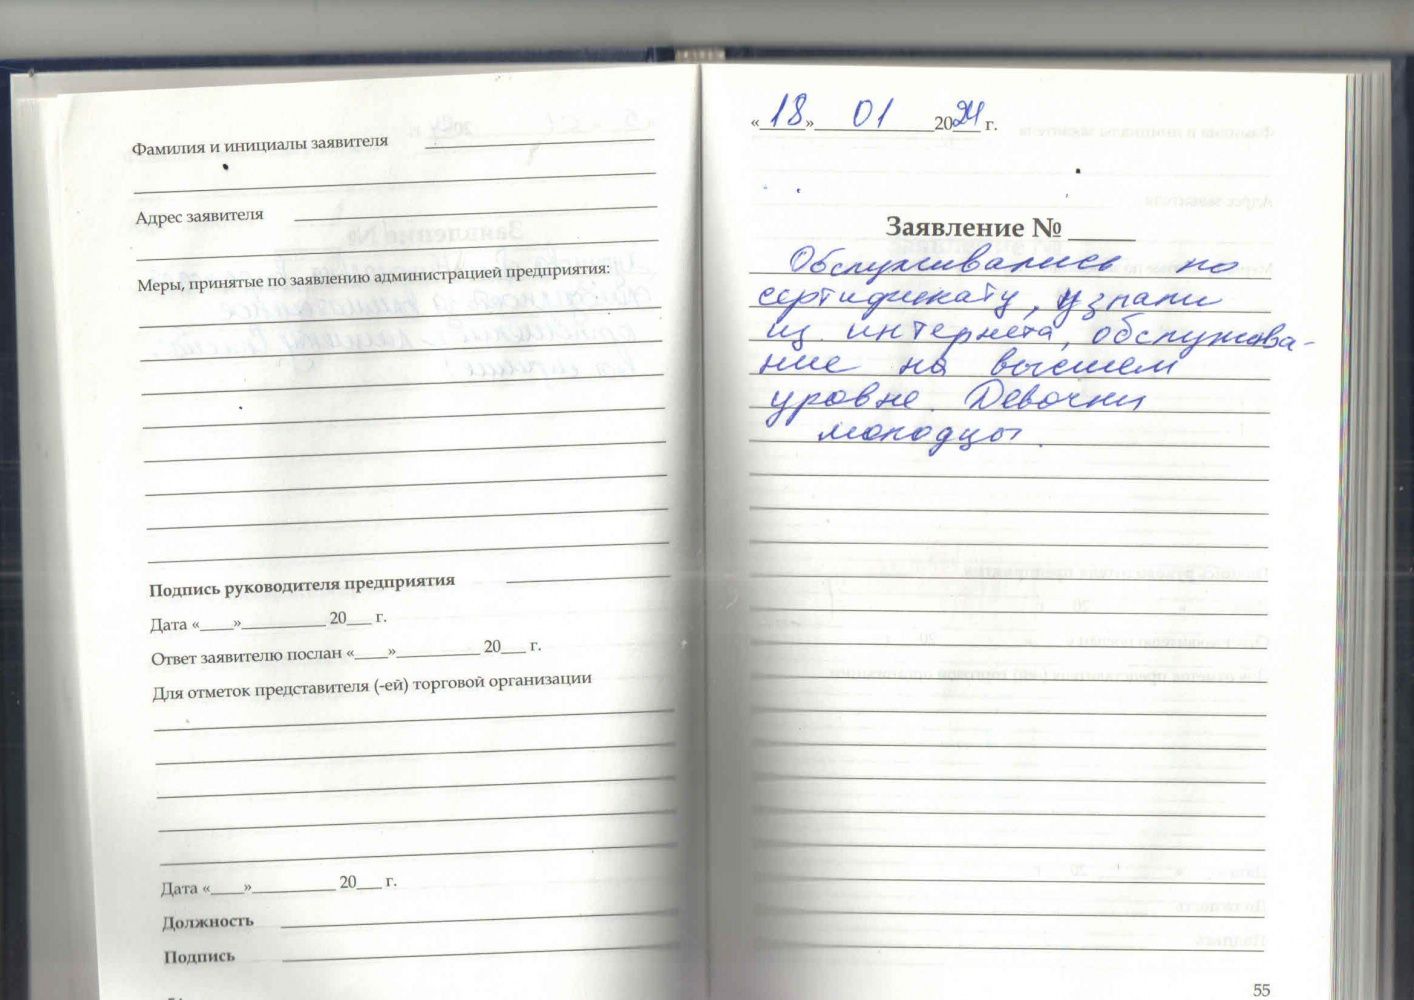 Фамилия и инициалы заявителя
Адрес заявителя
Меры, принятые по заявлению администрацией предприятия:
Подпись руководителя предприятия
Дата «____»__________ 20___ г.
Ответ заявителю послан «____»__________ 20___ г.
Для отметок представителя (-ей) торговой организации
Дата «____»__________ 20___ г.
Должность
Подпись
«18» 01 2024 г.
Заявление № _____
Обслуживались по
сертификату, узнали
из интернета, обслужива-
ние на высшем
уровне. Девочки
молодцы.
55